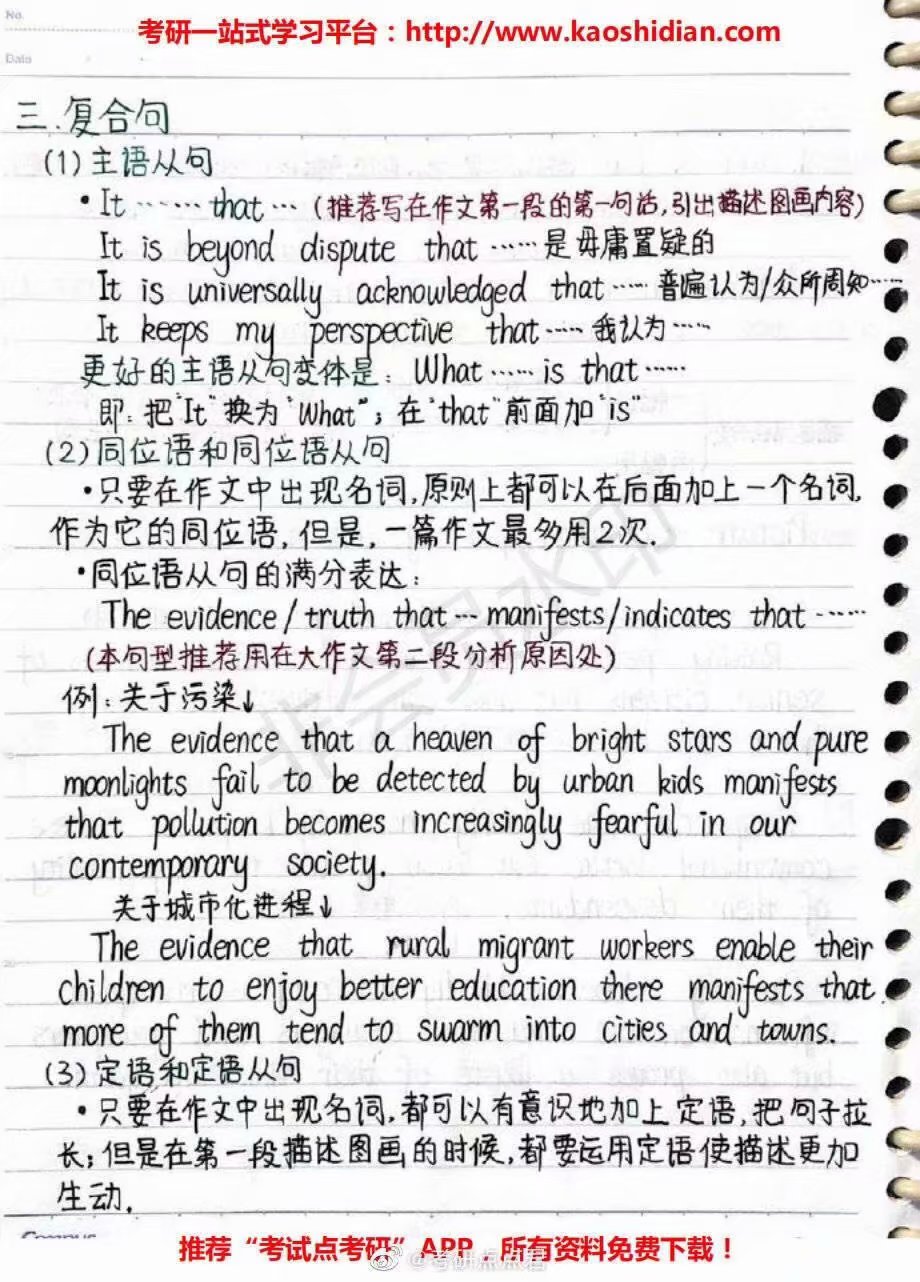 No.
Date
考研一站式学习平台：http://www.kaoshidian.com
三.复合句
(1) 主语从句
• It ……… that … (推荐写在作文第一段的第一句话,引出描述图画内容)
It is beyond dispute that ……是毋庸置疑的
It is universally acknowledged that ……普遍认为/众所周知……
It keeps my perspective that …… 我认为……
更好的主语从句变体是: What …… is that ……
即:把"It"换为"What";在"that"前面加"is"
(2) 同位语和同位语从句
•只要在作文中出现名词,原则上都可以在后面加上一个名词,
作为它的同位语,但是,一篇作文最多用2次.
•同位语从句的满分表达:
The evidence/truth that … manifests/indicates that ……
(本句型推荐用在大作文第二段分析原因处)
例:关于污染↓
The evidence that a heaven of bright stars and pure
moonlights fail to be detected by urban kids manifests
that pollution becomes increasingly fearful in our
contemporary society.
关于城市化进程↓
The evidence that rural migrant workers enable their
children to enjoy better education there manifests that
more of them tend to swarm into cities and towns.
(3) 定语和定语从句
•只要在作文中出现名词,都可以有意识地加上定语,把句子拉
长;但是在第一段描述图画的时候,都要运用定语使描述更加
生动.
Campus
推荐“考试点考研”APP，所有资料免费下载！
@考研点点君
非会员水印